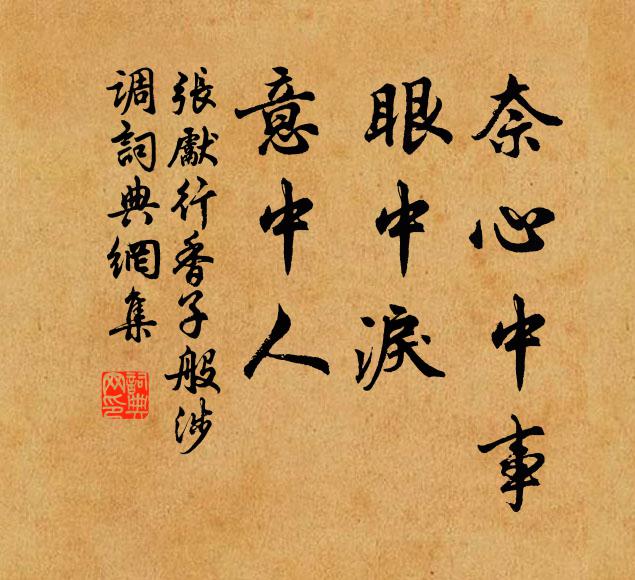 奈心中事
眼中淚
意中人
張獻行香子般涉
调詞典網集
詞典网印